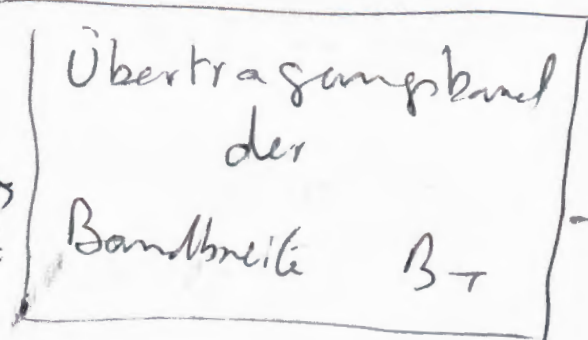 Übertragungskanal
der
Bandbreite B_T